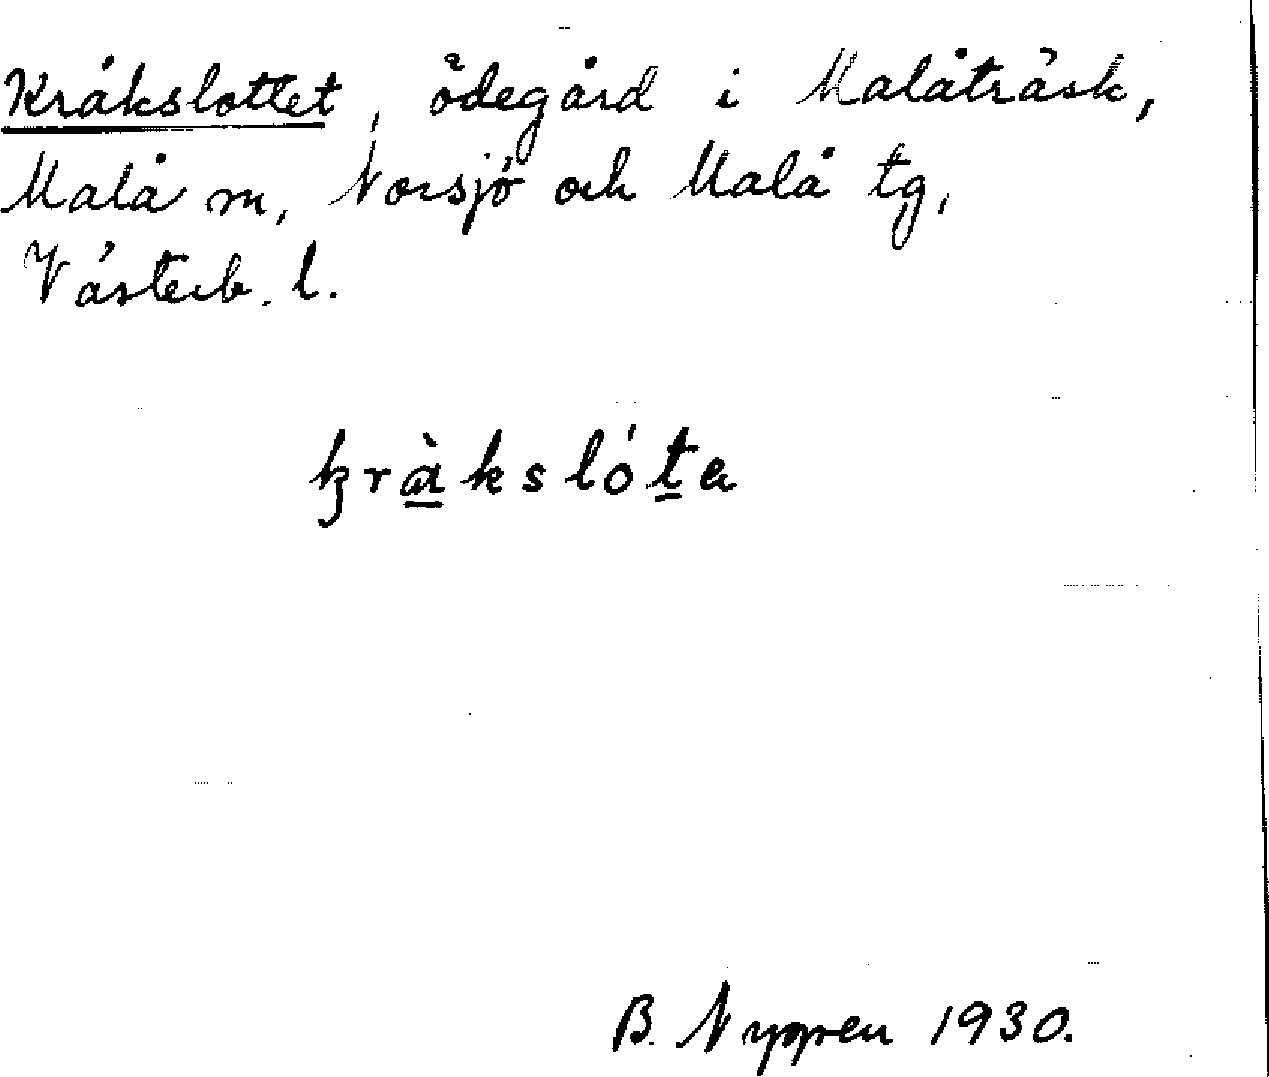 Kråkslottet, ödegård i Malåträsk,
Malå sn, Norsjö och Malå tg,
Västerb. l.
B. Nygren 1930.